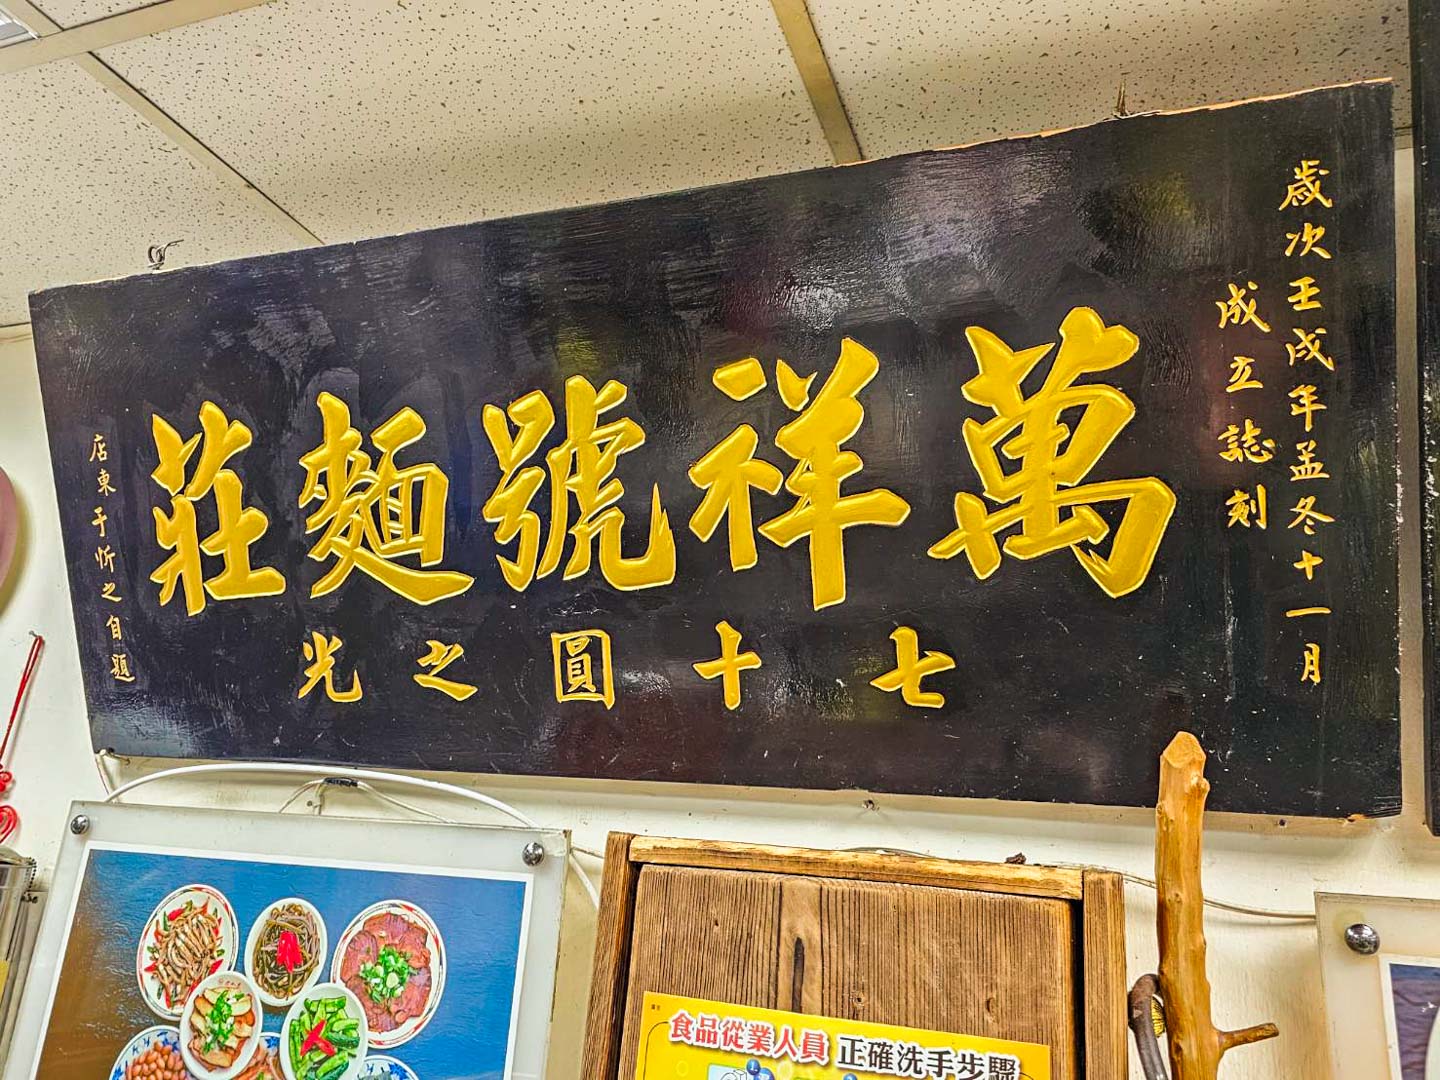 歲次壬戌年孟冬十一月
成立誌刻
萬祥號麵莊
七十圓之光
店東于忻之自題
食品從業人員 正確洗手步驟